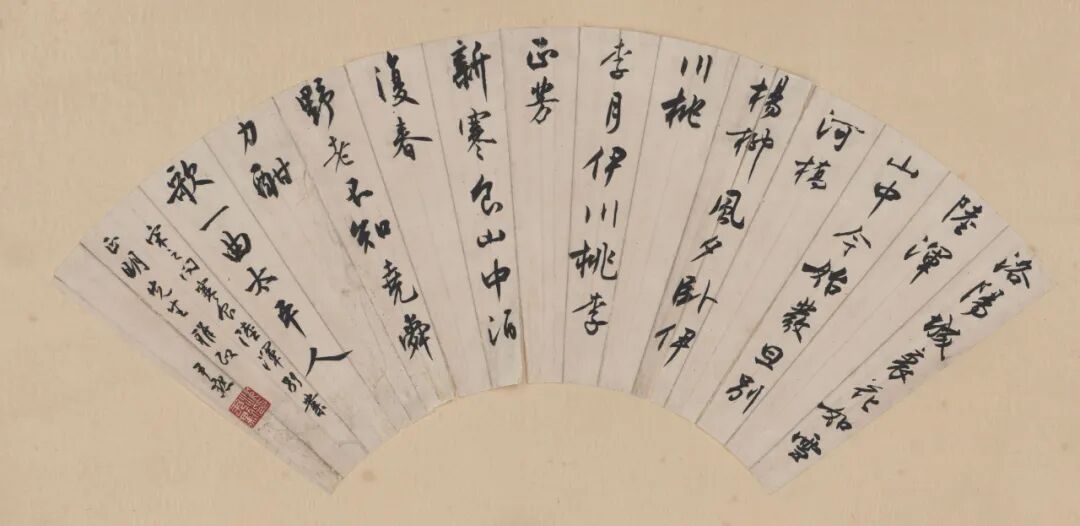 洛陽城裏花如雪
陸渾
山中今始發旦別
河橋
楊柳風夕臥伊
川桃
李月伊川桃李
正芳
新寒食山中酒
復春
野老不知堯舜
力酣
歌一曲太平人
宋之问寒食陸渾別業
正明先生雅政